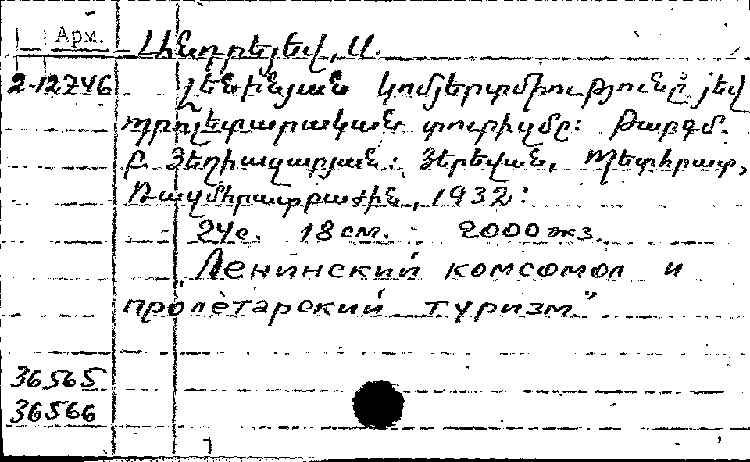 Арм.
Անդրեյեվ, Ա.
2-12746 Լենինյան կոմյերտմիությունը յեվ
պրոլետարական տուրիզմը: Թարգմ.
Բ. Յեղիազարյան: Յերեվան, Պետհրատ,
Ռազմհրատբաժին, 1932:
24с. 18 см. 2000 экз.
"Ленинский комсомол и
пролетарский туризм"
36565
36566